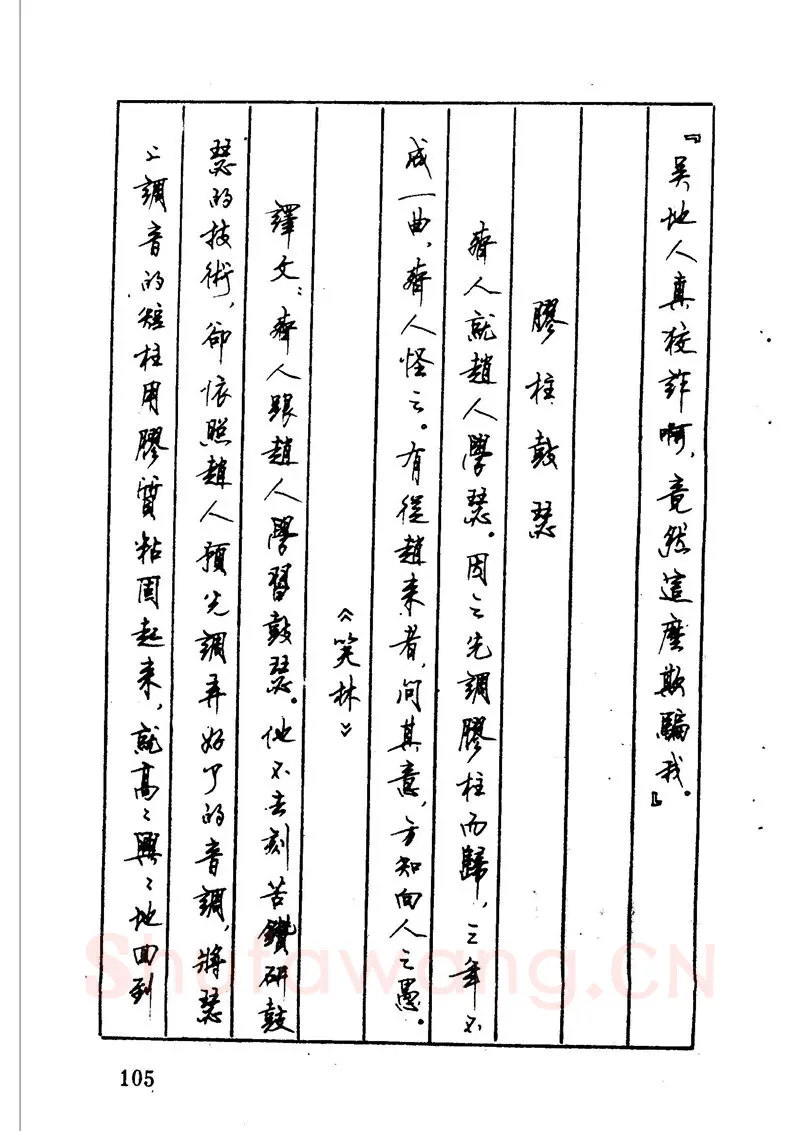 『吳地人真狡詐啊，竟然這麼欺騙我。』
膠柱鼓瑟
齊人就趙人學瑟。因之先調膠柱而歸，三年不
成一曲，齊人怪之。有從趙來者，問其意，方知向人之愚。
《笑林》
譯文：齊人跟趙人學習鼓瑟。他不去刻苦鑽研鼓
瑟的技術，卻依照趙人預先調弄好了的音調，將瑟
上調音的短柱用膠質粘固起來，就高〻興〻地回到
105
Shufawang.CN